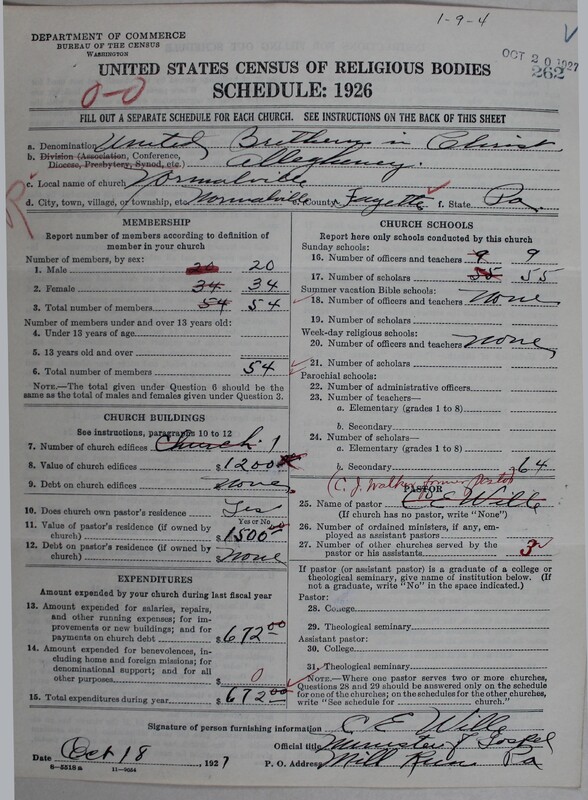 1-9-4
DEPARTMENT OF COMMERCE
BUREAU OF THE CENSUS
WASHINGTON
OCT 20 1927
262
UNITED STATES CENSUS OF RELIGIOUS BODIES
0-0
SCHEDULE: 1926
FILL OUT A SEPARATE SCHEDULE FOR EACH CHURCH. SEE INSTRUCTIONS ON THE BACK OF THIS SHEET
a. Denomination United Brethern in Christ
b. Division (Association, Conference, Diocese, Presbytery, Synod, etc.) Allegheney.
c. Local name of church Normalville
d. City, town, village, or township, etc. Normalville e. County Fayette f. State Pa.
MEMBERSHIP
Report number of members according to definition of member in your church
Number of members, by sex:
1. Male 20 20
2. Female 34 34
3. Total number of members 54 54
Number of members under and over 13 years old:
4. Under 13 years of age
5. 13 years old and over
6. Total number of members 54
NOTE.—The total given under Question 6 should be the same as the total of males and females given under Question 3.
CHURCH BUILDINGS
See instructions, paragraphs 10 to 12
7. Number of church edifices Church 1
8. Value of church edifices $1200
9. Debt on church edifices None
10. Does church own pastor's residence Yes
Yes or No
11. Value of pastor's residence (if owned by church) $1500 00
12. Debt on pastor's residence (if owned by church) None
EXPENDITURES
Amount expended by your church during last fiscal year
13. Amount expended for salaries, repairs, and other running expenses; for improvements or new buildings; and for payments on church debt $672 00
14. Amount expended for benevolences, including home and foreign missions; for denominational support; and for all other purposes $ 0
15. Total expenditures during year $672 00
CHURCH SCHOOLS
Report here only schools conducted by this church
Sunday schools:
16. Number of officers and teachers 9 9
17. Number of scholars 55 55
Summer vacation Bible schools:
18. Number of officers and teachers None
19. Number of scholars
Week-day religious schools:
20. Number of officers and teachers None
21. Number of scholars
Parochial schools:
22. Number of administrative officers
23. Number of teachers—
a. Elementary (grades 1 to 8)
b. Secondary
24. Number of scholars—
a. Elementary (grades 1 to 8)
b. Secondary 64
(C. J. Walker former Pastor)
PASTOR
25. Name of pastor C E Wills
(If church has no pastor, write "None")
26. Number of ordained ministers, if any, employed as assistant pastors
27. Number of other churches served by the pastor or his assistants
If pastor (or assistant pastor) is a graduate of a college or theological seminary, give name of institution below. (If not a graduate, write "No" in the space indicated.)
Pastor:
28. College
29. Theological seminary
Assistant pastor:
30. College
31. Theological seminary
NOTE.—Where one pastor serves two or more churches, Questions 28 and 29 should be answered only on the schedule for one of the churches; on the schedules for the other churches, write "See schedule for church."
Signature of person furnishing information C E Wills
Official title Minister of Gospel
Date Oct 18, 1927 P. O. Address Mill Run Pa
6—5518a 11—9054